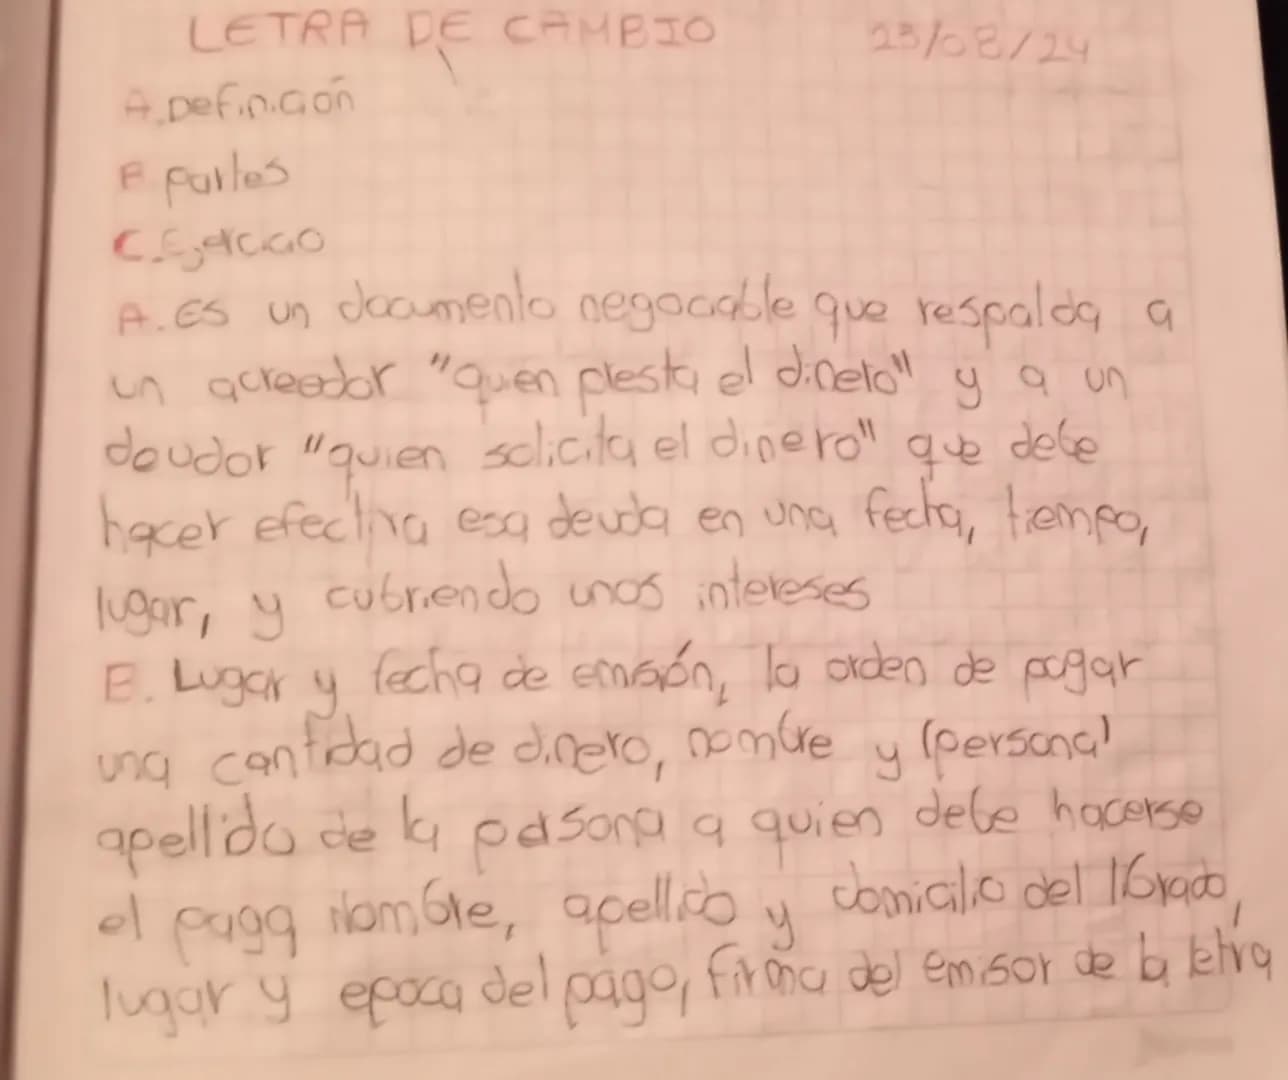 LETRA DE CAMBIO 23/08/24
A. Definición
B. partes
C. Ejercicio
A. Es un documento negociable que respalda a
un acreedor "quien presta el dinero" y a un
deudor "quien solicita el dinero" que debe
hacer efectiva esa deuda en una fecha, tiempo,
lugar, y cubriendo unos intereses
B. Lugar y fecha de emisión, la orden de pagar
una cantidad de dinero, nombre y (persona)
apellido de la persona a quien debe hacerse
el paga Nombre, apellido y domicilio del librado,
lugar y epoca del pago, firma del emisor de la letra